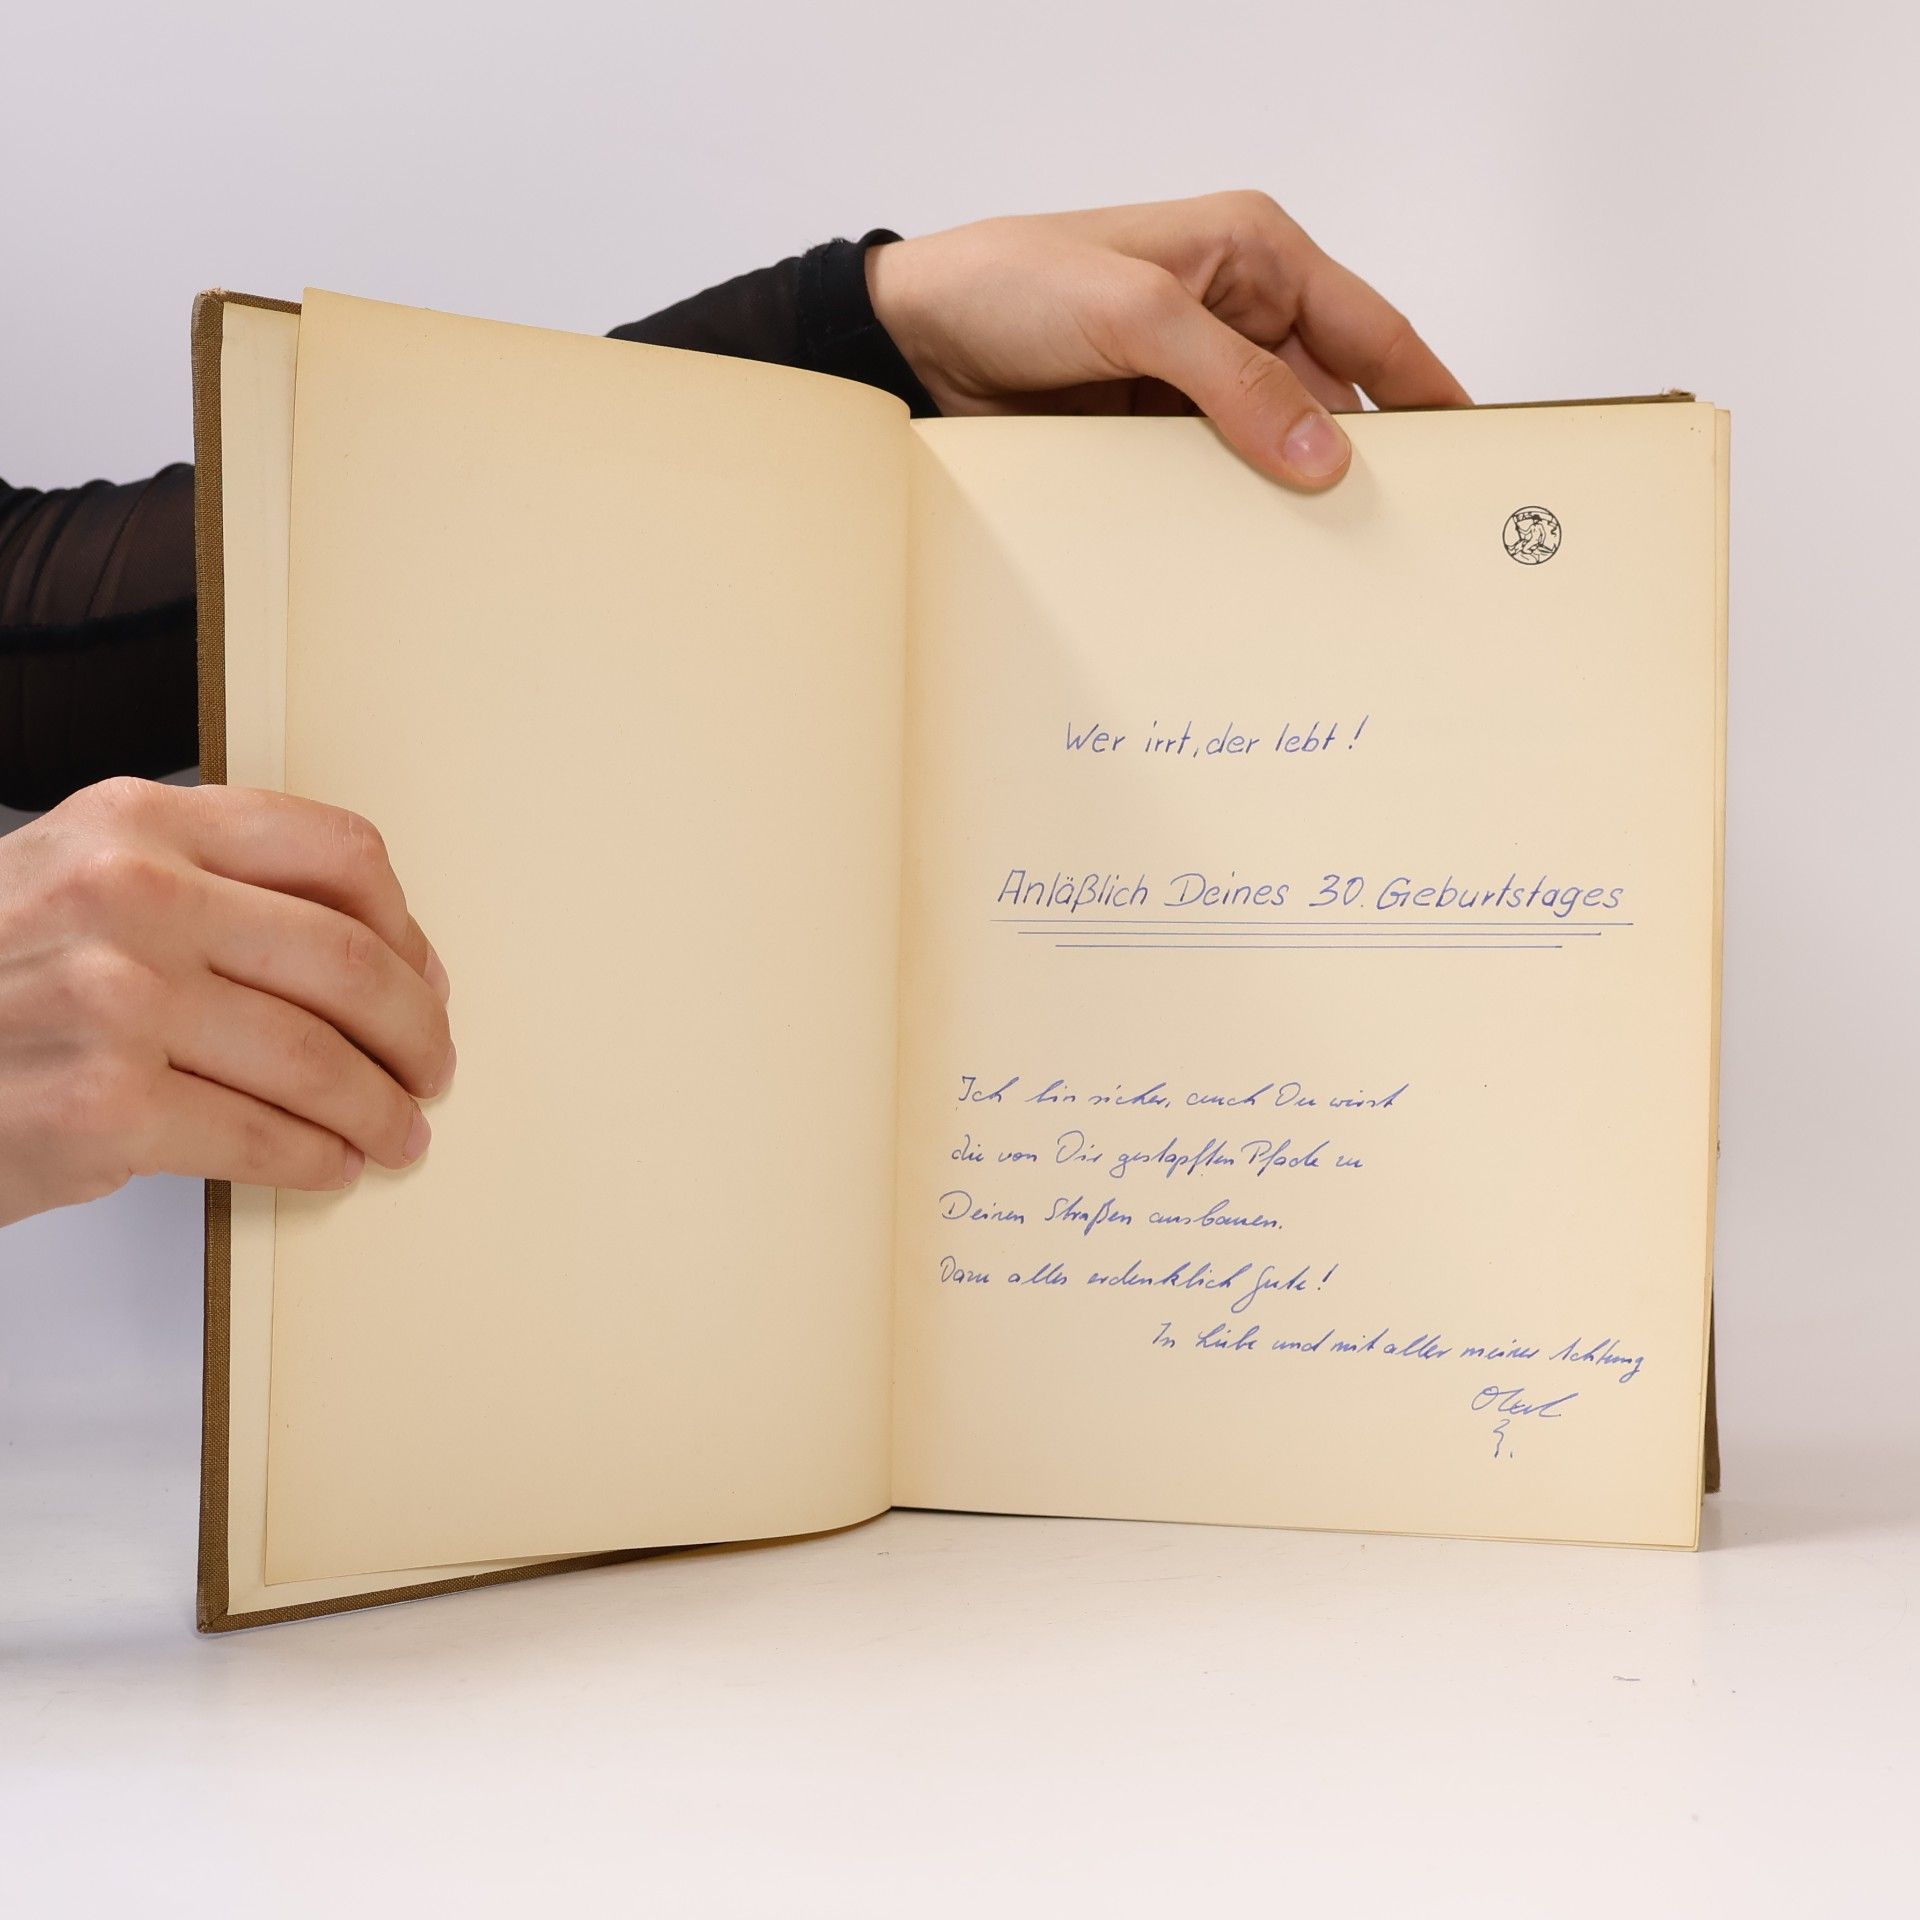 Wer irrt, der lebt!
Anläßlich Deines 30. Geburtstages
Ich bin sicher, auch Du wirst
die von Dir gestapften Pfade zu
Deinen Straßen ausbauen.
Dazu alles erdenklich Gute!
In Liebe und mit aller meiner Achtung